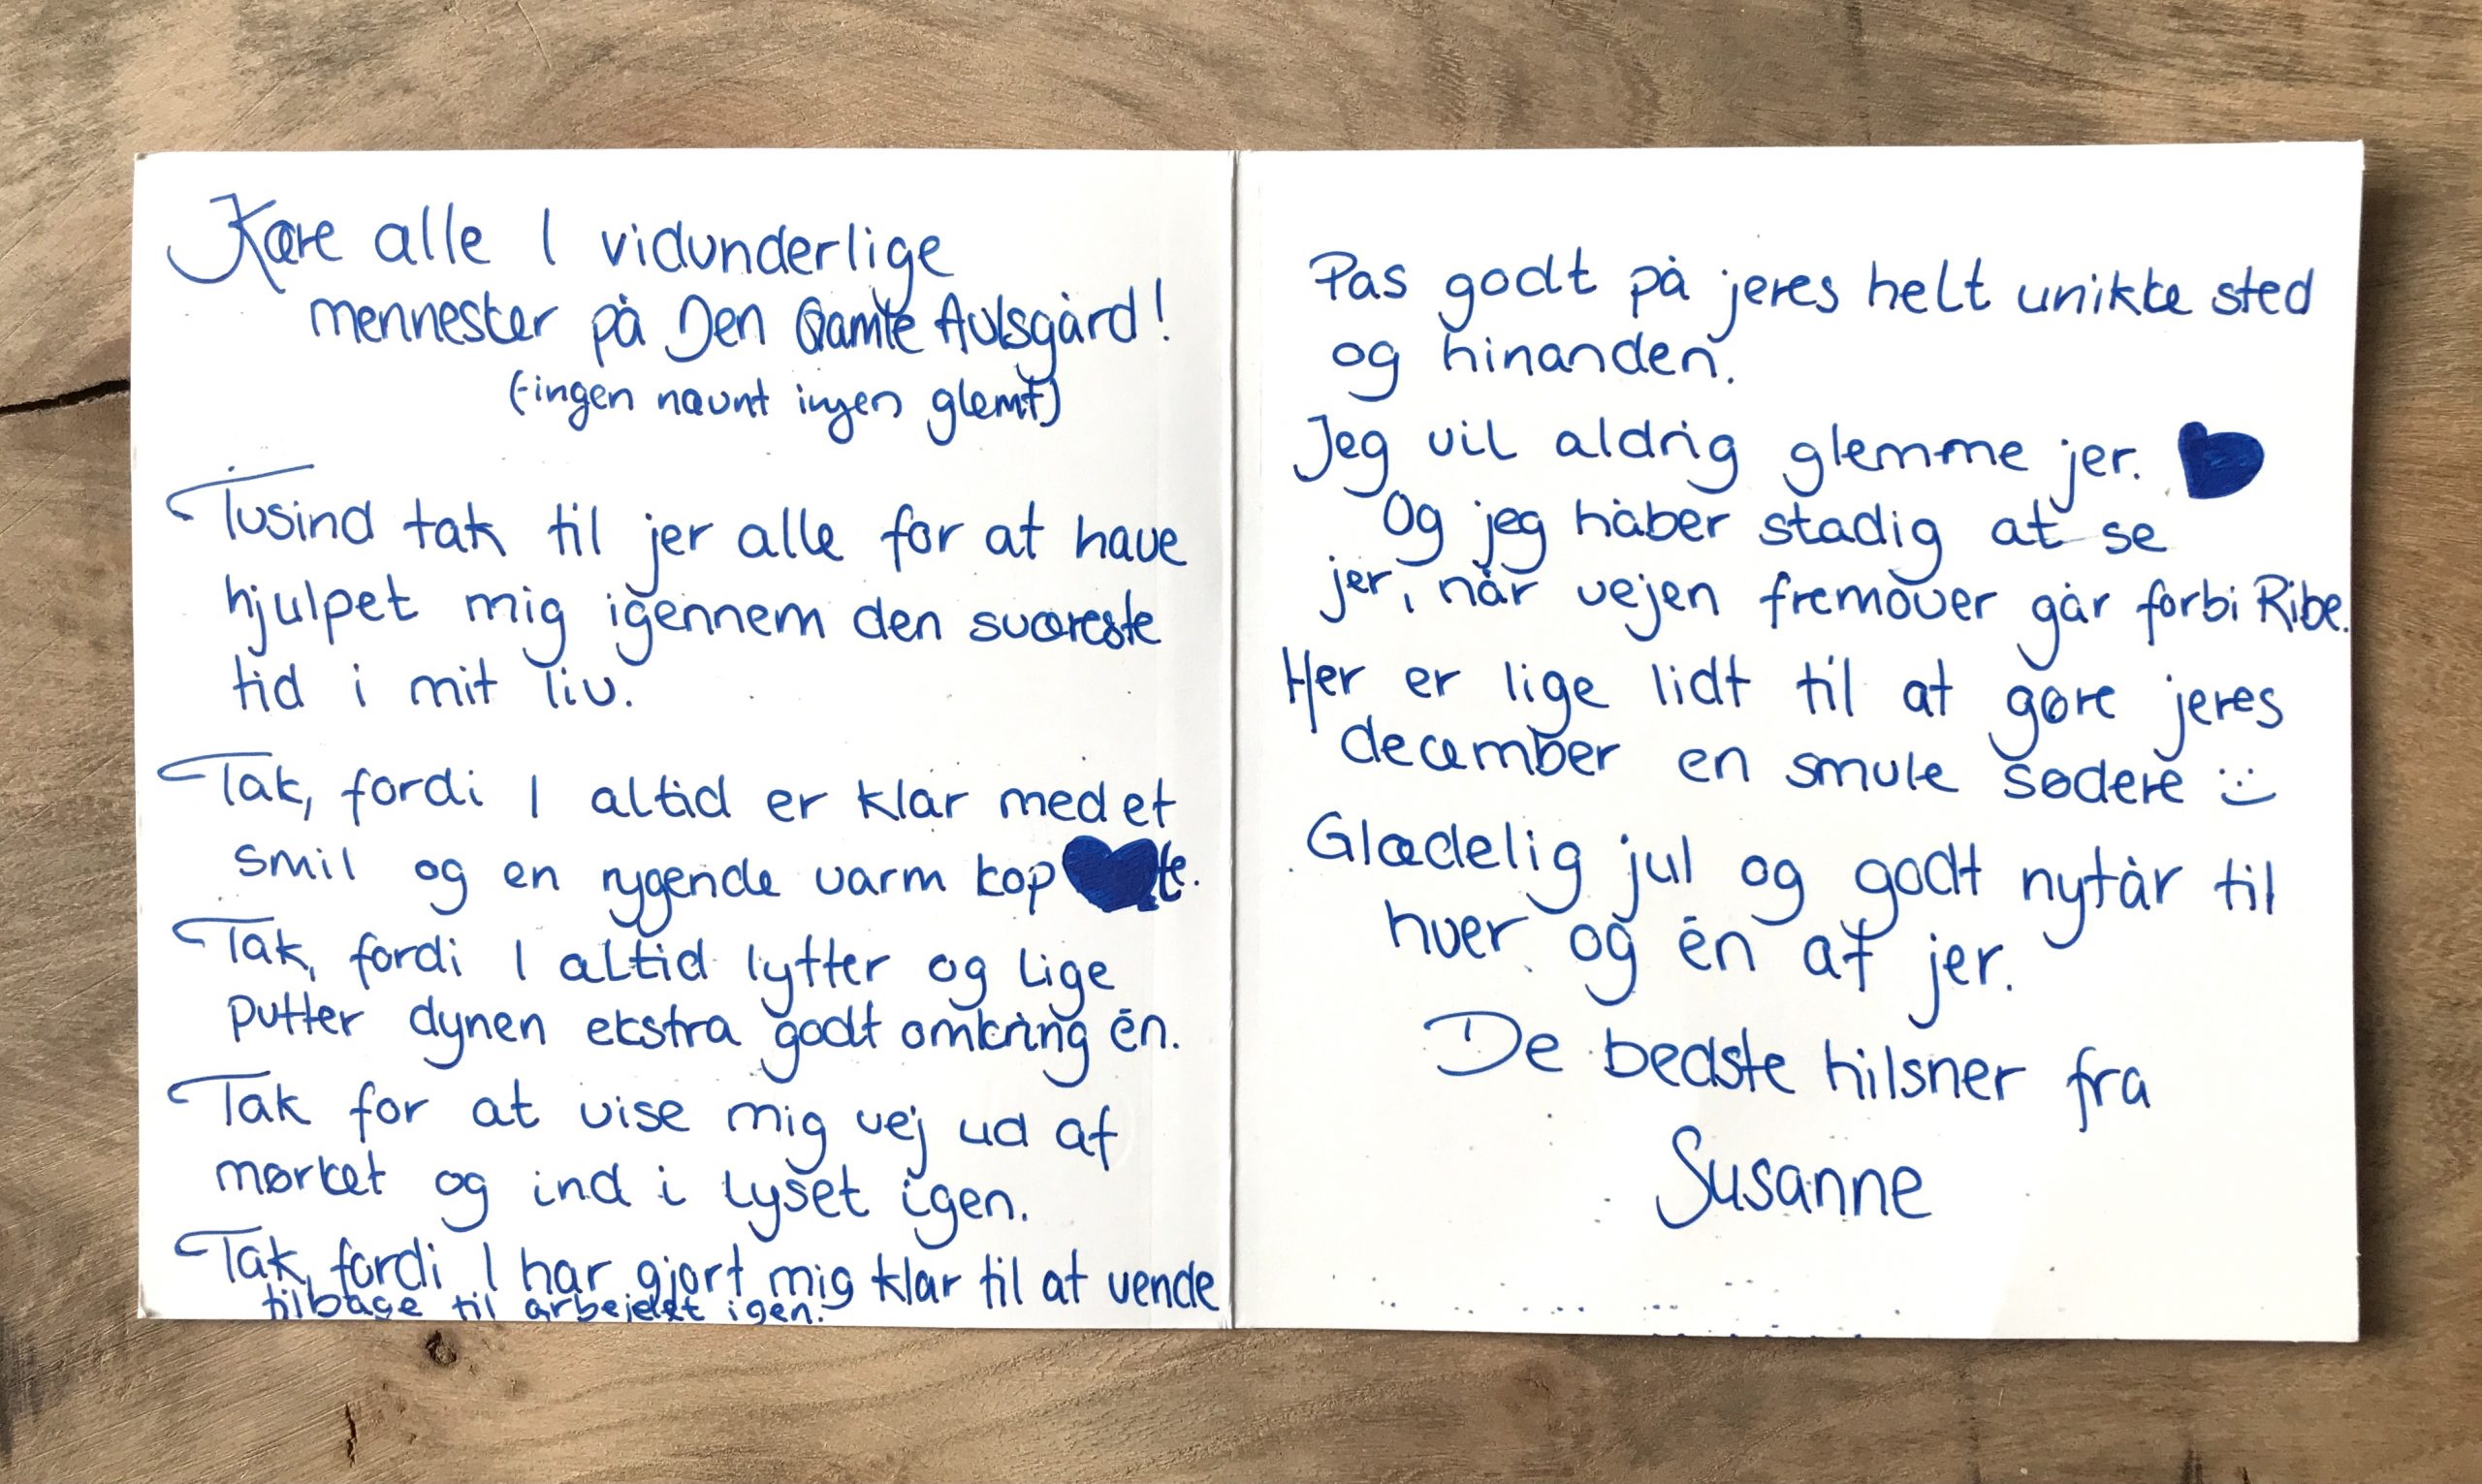 Kære alle I vidunderlige
mennesker på Den Gamle Avlsgård!
(-ingen nævnt ingen glemt)
Tusind tak til jer alle for at have
hjulpet mig igennem den sværeste
tid i mit liv.
Tak, fordi I altid er klar med et
smil og en rygende varm kop te.
Tak, fordi I altid lytter og lige
putter dynen ekstra godt omkring én.
Tak for at vise mig vej ud af
mørket og ind i lyset igen.
Tak, fordi I har gjort mig klar til at vende
tilbage til arbejdet igen.
Pas godt på jeres helt unikke sted
og hinanden.
Jeg vil aldrig glemme jer.
Og jeg håber stadig at se
jer, når vejen fremover går forbi Ribe.
Her er lige lidt til at gøre jeres
december en smule sødere :)
Glædelig jul og godt nytår til
hver og én af jer.
De bedste hilsner fra
Susanne